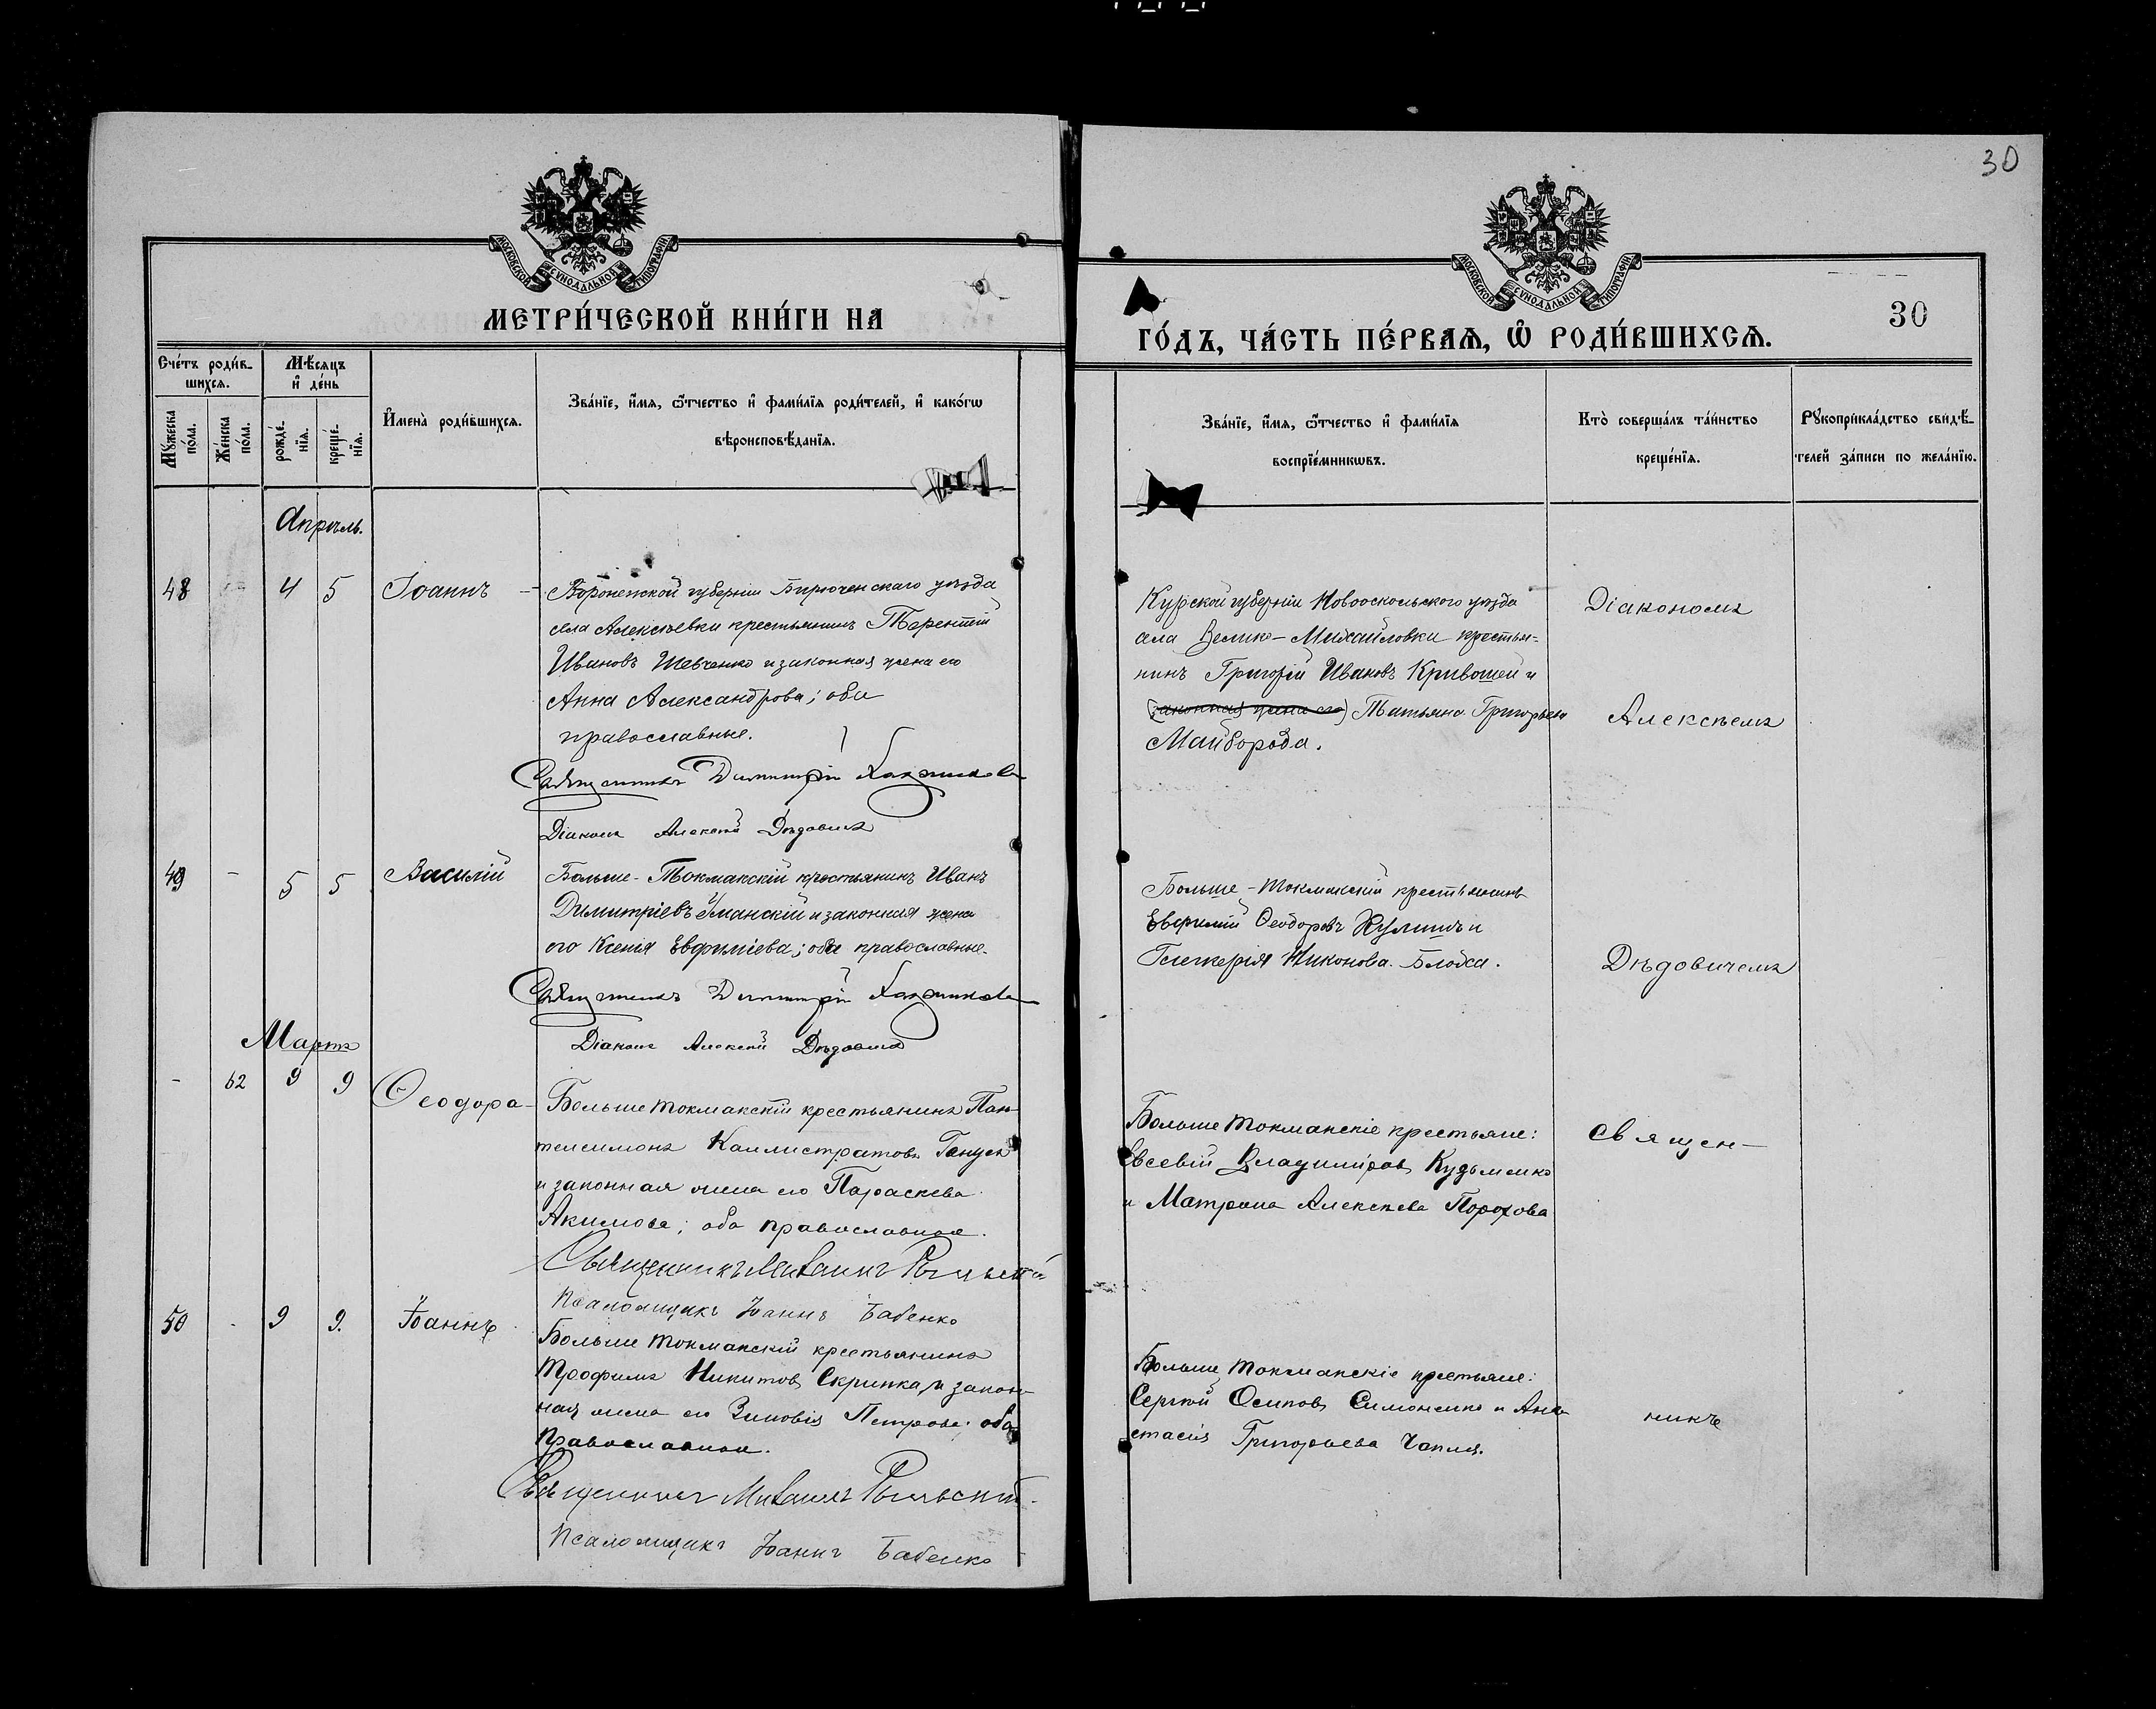 30
МОСКОВСКОЙ СѴНОДАЛЬНОЙ ТИПОГРАФІИ
МЕТРИ́ЧЕСКОЙ КНИ́ГИ НА
Сче́тъ роди́в-
шихся.
Мѣ́сяцъ
и҆ де́нь
Мꙋ́жеска
по́ла.
Же́нска
по́ла.
рожде́-
нїя.
креще́-
нїя.
И҆мена̀ роди́вшихся.
Зва́нїе, и҆́мя, ѻ҆́тчество и҆ фами́лїя роди́телей, и҆ како́гѡ
вѣроисповѣ́данїя.
Апрѣль.
48 4 5 Іоаннъ
Воронежской губерніи Бирюченскаго уѣзда
села Алексѣевки крестьянинъ Терентій
Ивановъ Шевченко и законная жена его
Анна Александрова; оба
православные.
Священникъ Димитрій
Діаконъ Алексѣй Дѣдовичъ
49 - 5 5 Василій
Больше-Токмакскій крестьянинъ Иванъ
Димитріевъ Уманскій и законная жена
его Ксенія Евфиміева; оба православные.
Священникъ Димитрій
Діаконъ Алексѣй Дѣдовичъ
Мартъ
- 62 9 9 Ѳеодора
Больше Токмакскій крестьянинъ Пан-
телеимонъ Каллистратовъ
и законная жена его Параскева
Акимова; оба православные.
Священникъ Михаилъ Рыльскій
Псаломщикъ Іоаннъ Бабенко
50 - 9 9. Іоаннъ
Больше Токмакскій крестьянинъ
Трофимъ Никитовъ Скрипка и закон-
ная жена его Зиновія Петрова: оба
православные.
Священникъ Михаилъ Рыльскій.
Псаломщикъ Іоаннъ Бабенко
МОСКОВСКОЙ СѴНОДАЛЬНОЙ ТИПОГРАФІИ
30
ГО́ДЪ, ЧА́СТЬ ПЕ́РВАѦ, Ѽ РОДИ́ВШИХСѦ.
Зва́нїе, и҆́мя, ѻ҆́тчество и҆ фами́лїя
воспрїе́мникѡвъ.
Кто̀ соверша́лъ та́инство
креще́нїя.
Рꙋкоприкла́дство свидѣ́-
телей за́писи по жела́нїю.
Курской губерніи Новооскольского уѣзда
села Велико-Михайловки крестья-
нинъ Григорій Ивановъ Кривошеи и
(законная жена его) Татьяна Григорьева
Майборода.
Діакономъ
Алексѣемъ
Больше-Токмакскій крестьянинъ
Евфимій Ѳеодоровъ Кулишъ и
Гликерія Никонова.
Дѣдовичемъ
Больше Токмакскіе крестьяне:
Евсевій Владиміровъ Кузьменко
и Матрона Алексѣева Порохова
Священ-
Больше Токмакскіе крестьяне:
Сергѣй Осиповъ Симоненко и Ана-
стасія Григорьева Чапля.
никъ